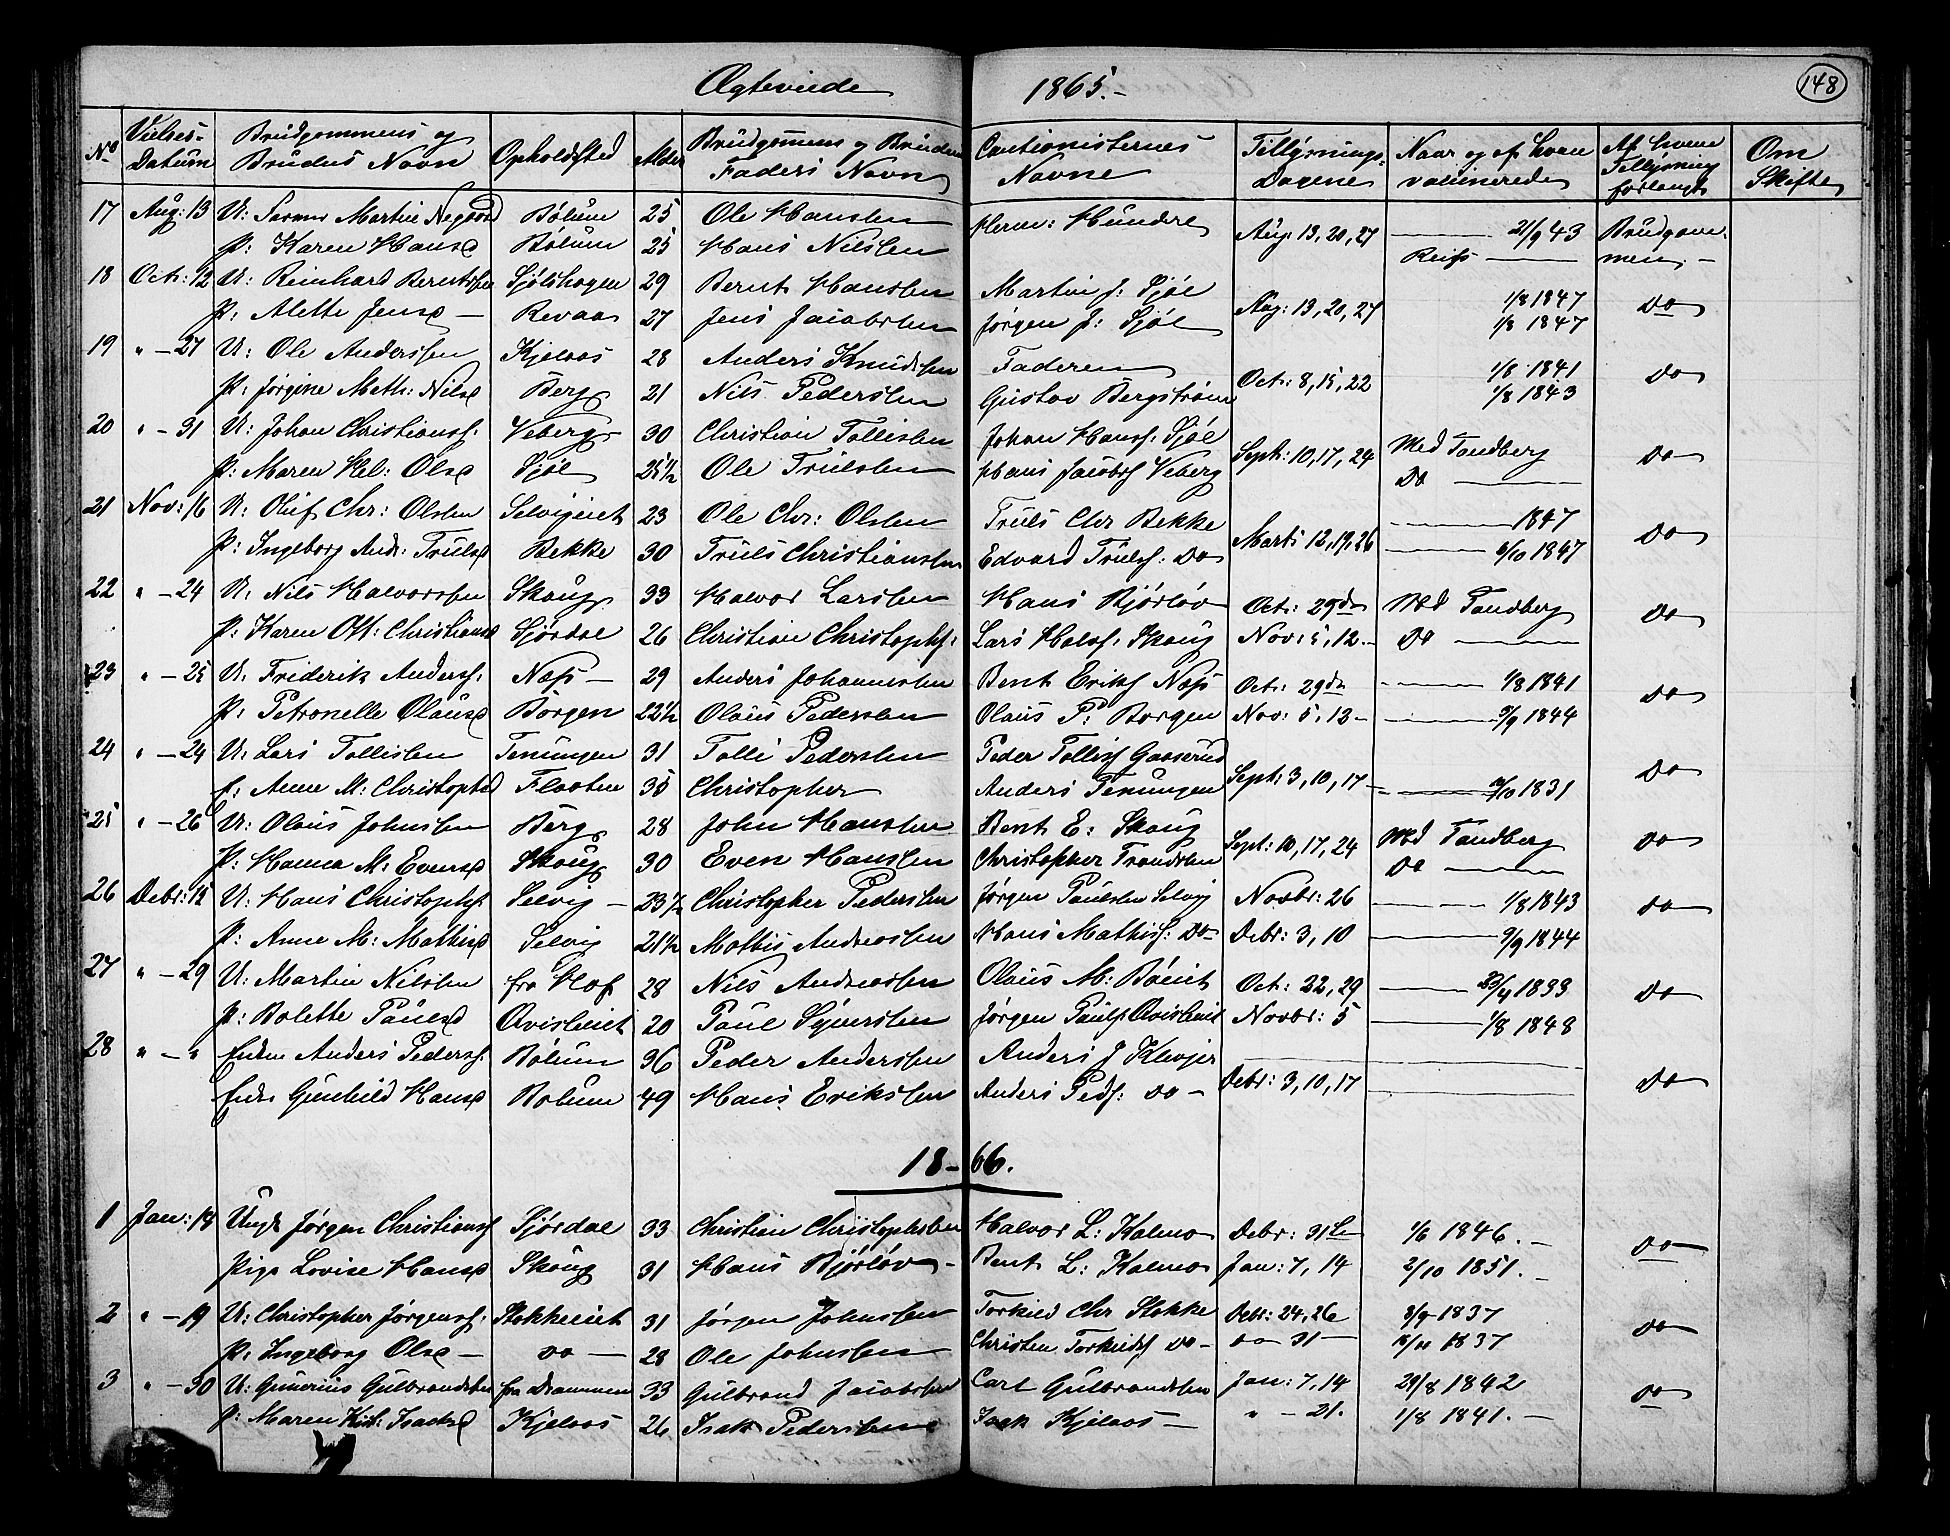 Ægteviede 1865.-
148
No Vielses- Datum Brudgommens og Brudens Navn Opholdsted Alder Brudgomens og Brudens Faders Navn Cautionisternes Navne Tillysnings- Dagene Naar og af hvem vaccinerede Af hvem Tillysning forlangt Om Skifte
17 Aug: 13 U: Martin Bølum 25 Ole Hansen Herm: Hundre Aug: 13, 20, 27 21/9 43 Brudgom-
P: Karen Hansd Bølum 25 Hans Nilsen Reiss men -
18 Oct: 12 U: Reinhard Berntsen Sjølshagen 29 Bernt Hansen Martin J: Sjøl Aug: 13, 20, 27 1/8 1847 do
P: Alette Jensd - Revaa 27 Jens Jacobsen Jørgen J: Sjøl 1/8 1847
19 " - 27 U: Ole Anderssen Kjelaas 28 Anders Knudsen Faderen Oct: 8, 15, 22 1/8 1841 do
P: Jørgine Math: Nilsd Berg 21 Nils Pedersen Gustav Bergstrøm 1/8 1843
20 " - 31 U: Johan Christians: Veberg 30 Christian Tollisen Johan Hanss: Sjøl Sept: 10, 17, 24 Med Tandberg do
P: Maren Hel: Olsd Sjøl 25 1/2 Ole Trulsen Hans Jacobs Veberg Do
21 Nov: 16 U: Oluf Chr: Olsen Selvigeiet 23 Ole Chr: Olsen Truls Chr Bekke Marts 12, 19, 26 1847 do
P: Ingeborg Andr: Trulsd Bekke 30 Truls Christiansen Edvard Trulss: Do 6/10 1847
22 " - 24 U: Nils Halvorsen Skoug 33 Halvor Larsen Hans Bjørløv Oct: 29de Med Tandberg do
P: Karen Ott: Christiansd Sjørdal 26 Christian Christophs: Lars Halvs: Skoug Nov: 5, 12. Do
23 " - 25 U: Friderik Anderss: Næss - 29 Anders Johannesen Bent Eriks Næss Oct: 29de 1/8 1841 do
P: Petronelle Olausd Borgen 22 1/2 Olaus Pedersen Olaus P: Borgen Nov: 5, 13 - 9/9 1844
24 " - 24 U: Lars Tollisen Tenungen 31 Tolli Pedersen Peder Tollis Gasserud Sept: 3, 10, 17 - do
f: Anne M: Christophd Flaaten 35 Christopher Anders Tenungen /10 1831
25 " - 26 U: Olaus Johnsen Berg 28 John Hansen Bent E: Skoug Sept: 10, 17, 24 Med Tandberg do
P: Hanna M: Evensd Skoug 30 Even Hansen Christopher Trondsen Do
26 Debr: 15 U: Hans Christophs: Selvig - 23 1/2 Christopher Pedersen Jørgen Paulsen Selvig Novbr: 26 1/8 1843 do
P: Anne M: Mathisd Selvig 21 1/2 Mattis Andreasen Hans Mathiss: Do Debr: 3, 10 9/9 1844
27 " - 29 U: Martin Nilsen fra Hof 28 Nils Andreasen Olaus M: Bøeiet Oct: 22, 29 1833 do
P: Bolette Paulsd Qvisleiet 20 Paul Syversen Jørgen Pauls Qvisleiet Novbr: 5 1/8 1848
28 " - " Enkem Anders Peders: Bølum 36 Peder Anderssen Anders J Klevjer Debr: 3, 10, 17 do
Enke Gunhild Hansd Bølum 49 Hans Eriksen Anders Peds: do -
18-66.
1 Jan: 18 Ungk Jørgen Christians Sjørdal 33 Christian Christophersen Halvor L: Kalmo Debr: 31te 1/6 1846. - do
Pige Lovise Hansd Skoug 31 Hans Bjørløv - Bent L: Kalmo Jan: 7, 14 2/10 1851. -
2 " - 19 U: Christopher Jørgens: Stokkeeiet 31 Jørgen Johnsen Torkild Chr Stokke Debr: 24, 26 3/9 1837 do
P: Ingeborg Olsd - do - 28 Ole Johnsen Christen Torkilds Do - do 31 - 1837
3 " - 30 U: Gunerius Gulbrandsen fra Drammen 33 Gulbrand Jacobsen Carl Gulbrandsen Jan: 7, 14 29/8 1842 do
P: Maren Kirst: Isaksd Kjelaas 26 Isak Pedersen Isak Kjelaas - " - 21. 1/8 1841. -